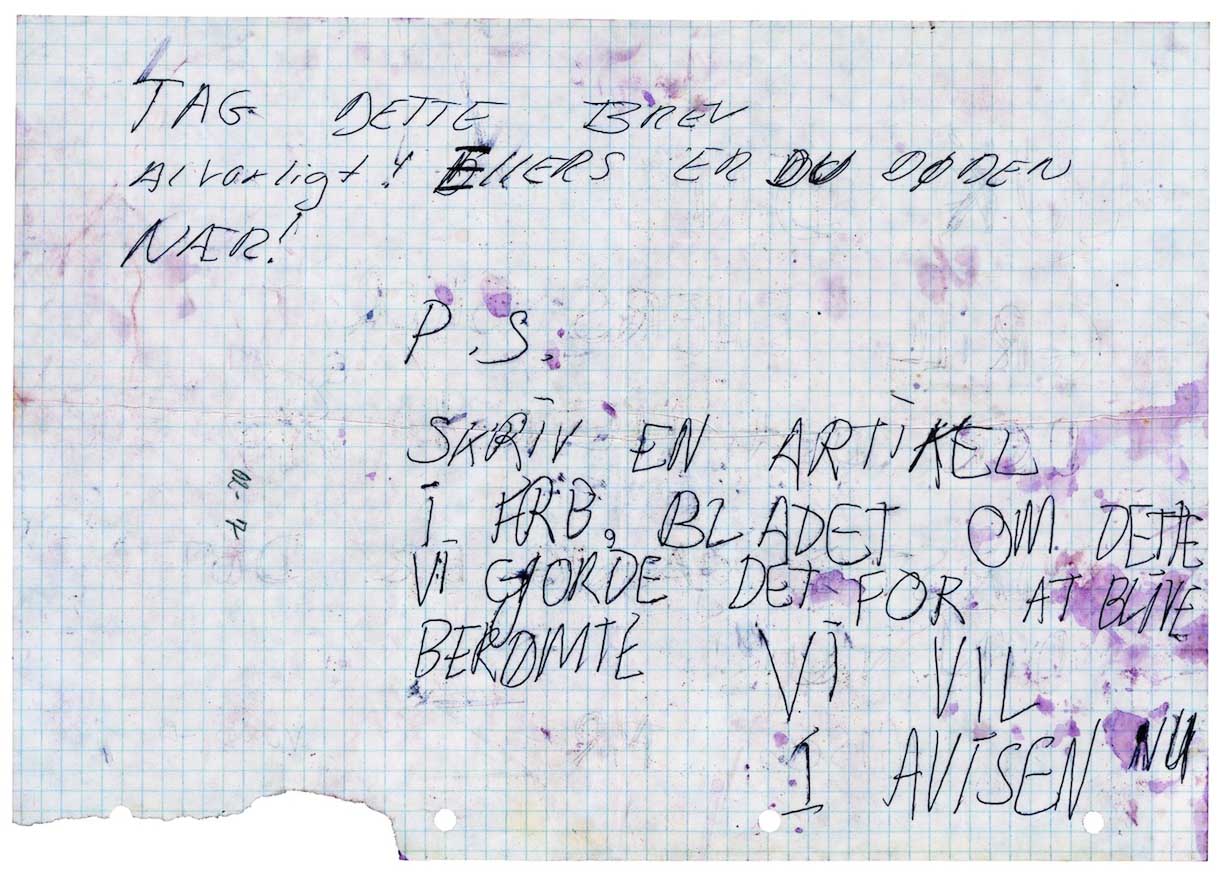 TAG DETTE BREV
Alvarligt! ELLERS ER DU DØDEN
NÆR!
P.S.
SKRIV EN ARTIKEL
I FRB, BLADET OM DETTE
VI GJORDE DET FOR AT BLIVE
BERØMTE
VI VIL
I AVISEN NU